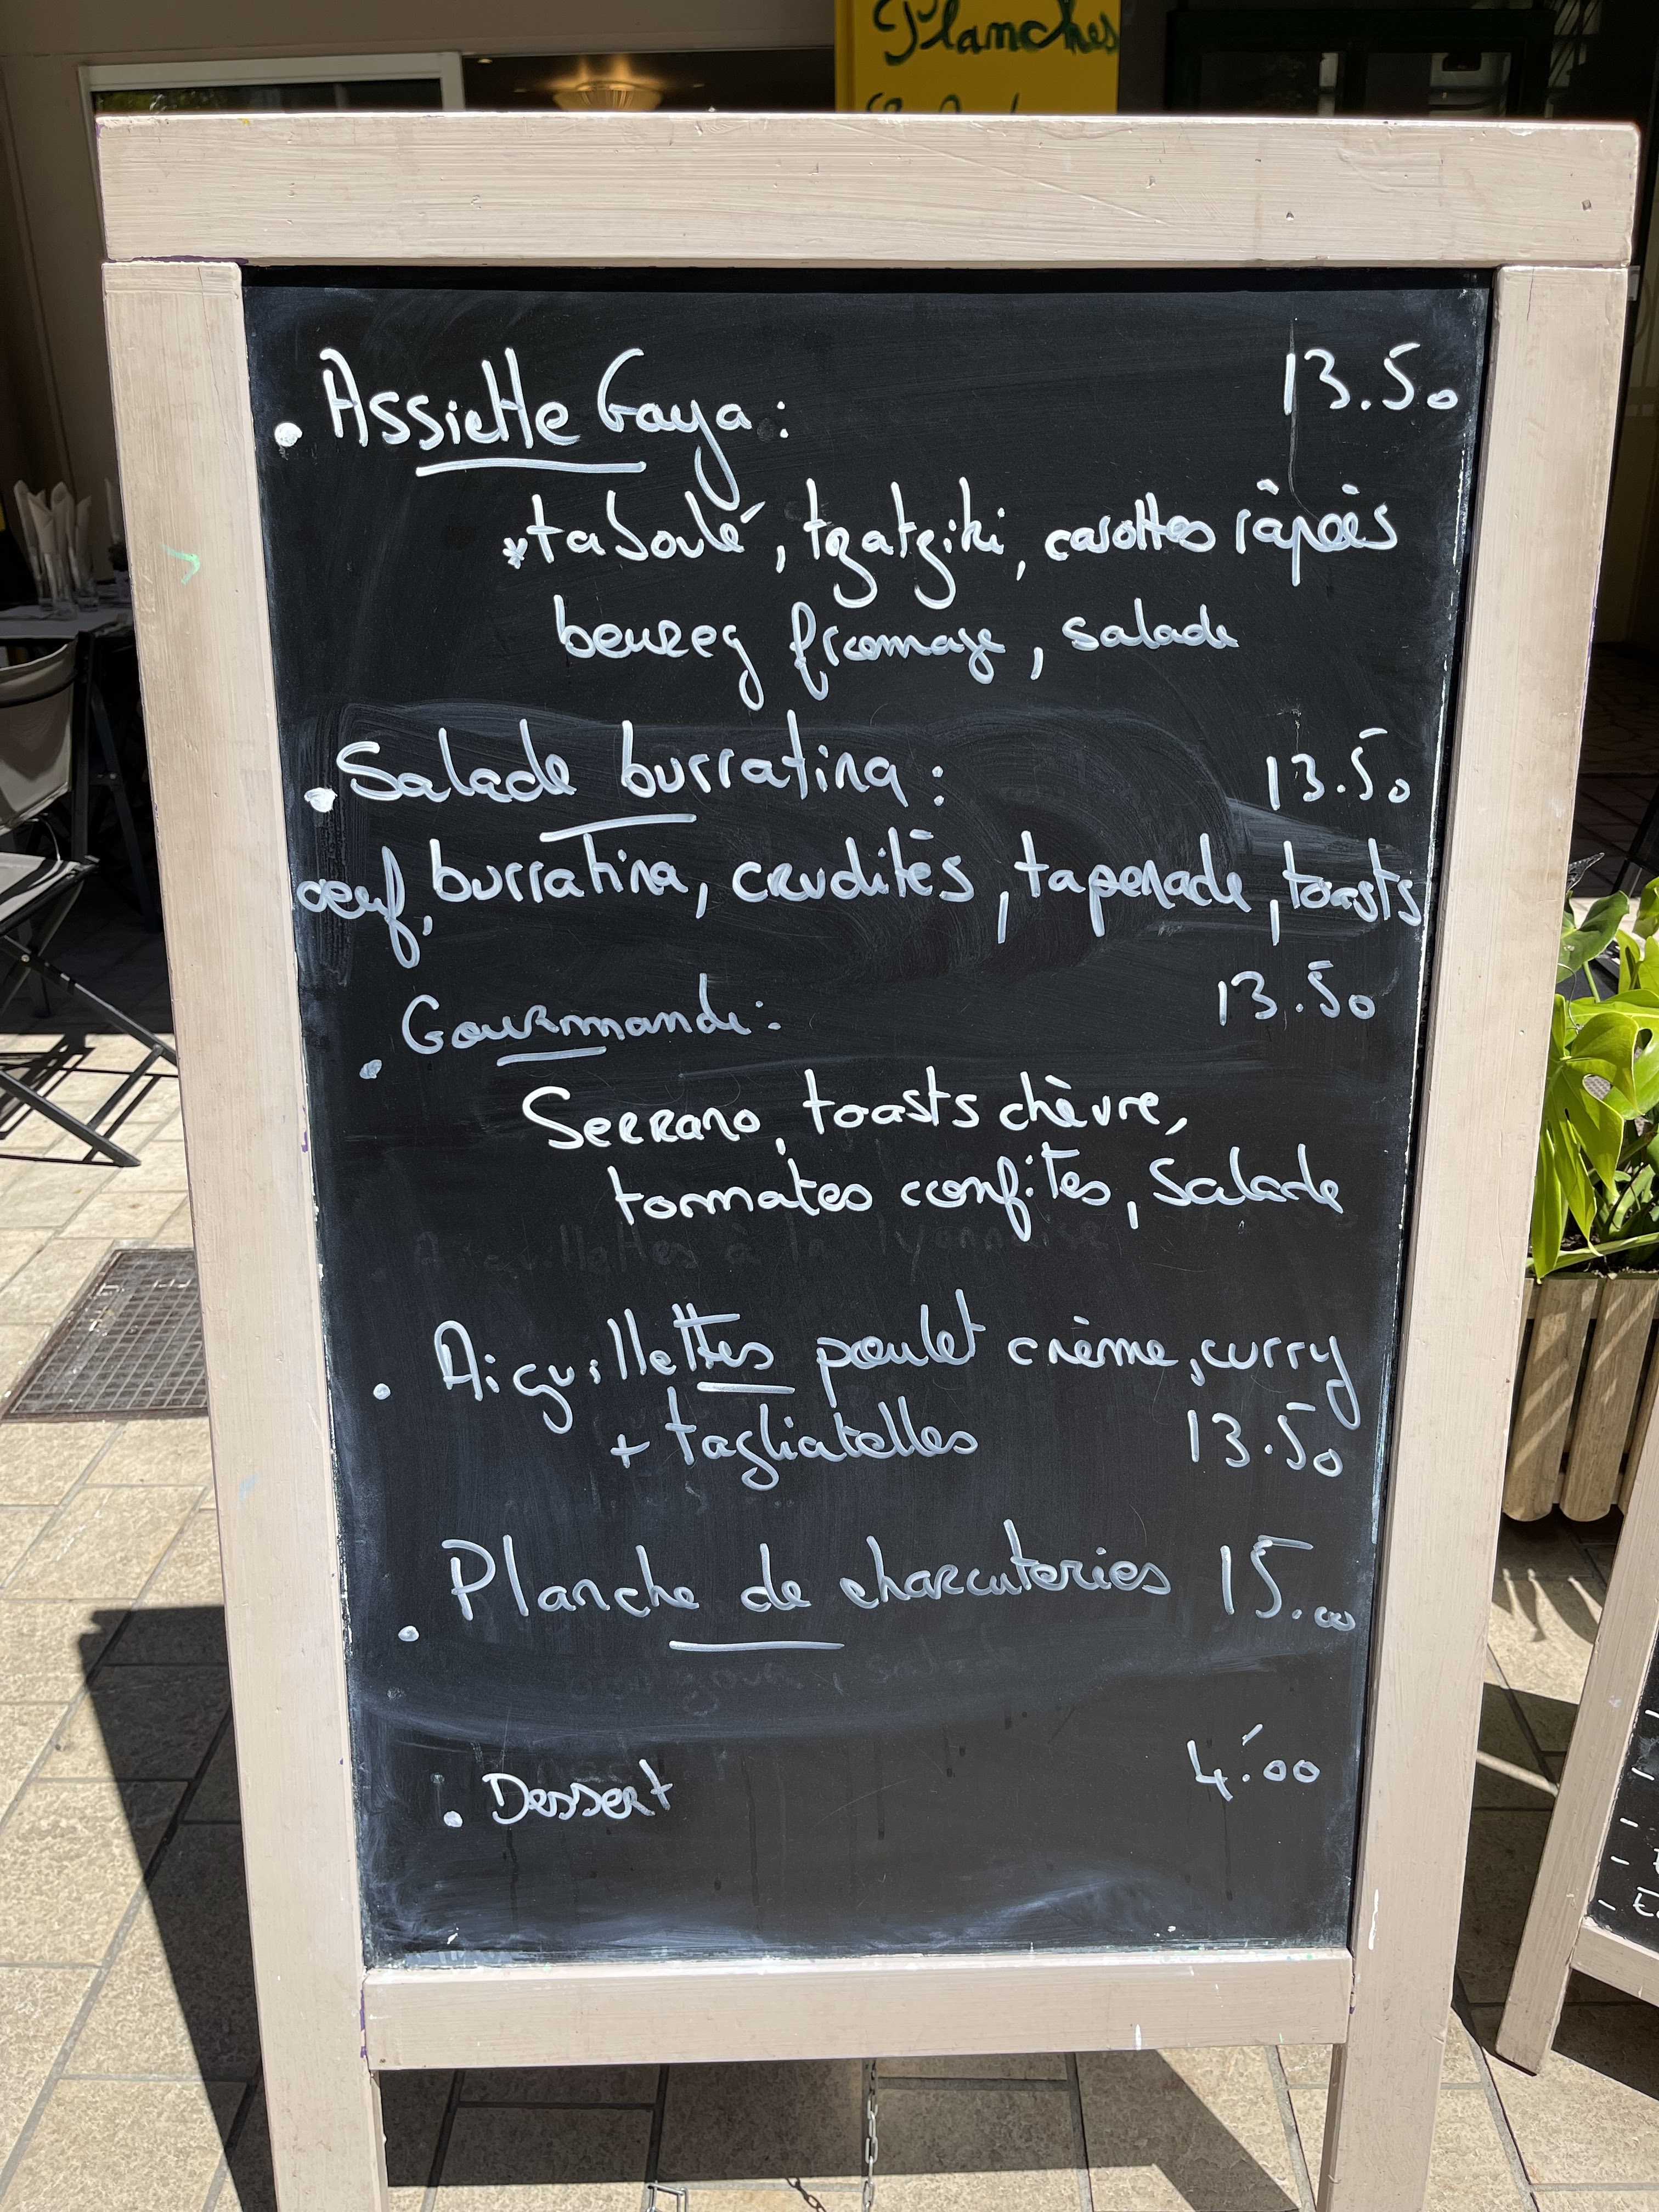 Planches
• Assiette Gaya : 13.50
*taboulé, tzatziki, carottes râpées
beureg fromage, salade
• Salade burratina : 13.50
oeuf, burratina, crudités, tapenade, toasts
• Gourmande : 13.50
Serrano, toasts chèvre,
tomates confites, Salade
Aiguillettes à la lyonnaise
• Aiguillettes poulet crème, curry
+ tagliatelles 13.50
• Planche de charcuteries 15.00
, salade
• Dessert 4.00